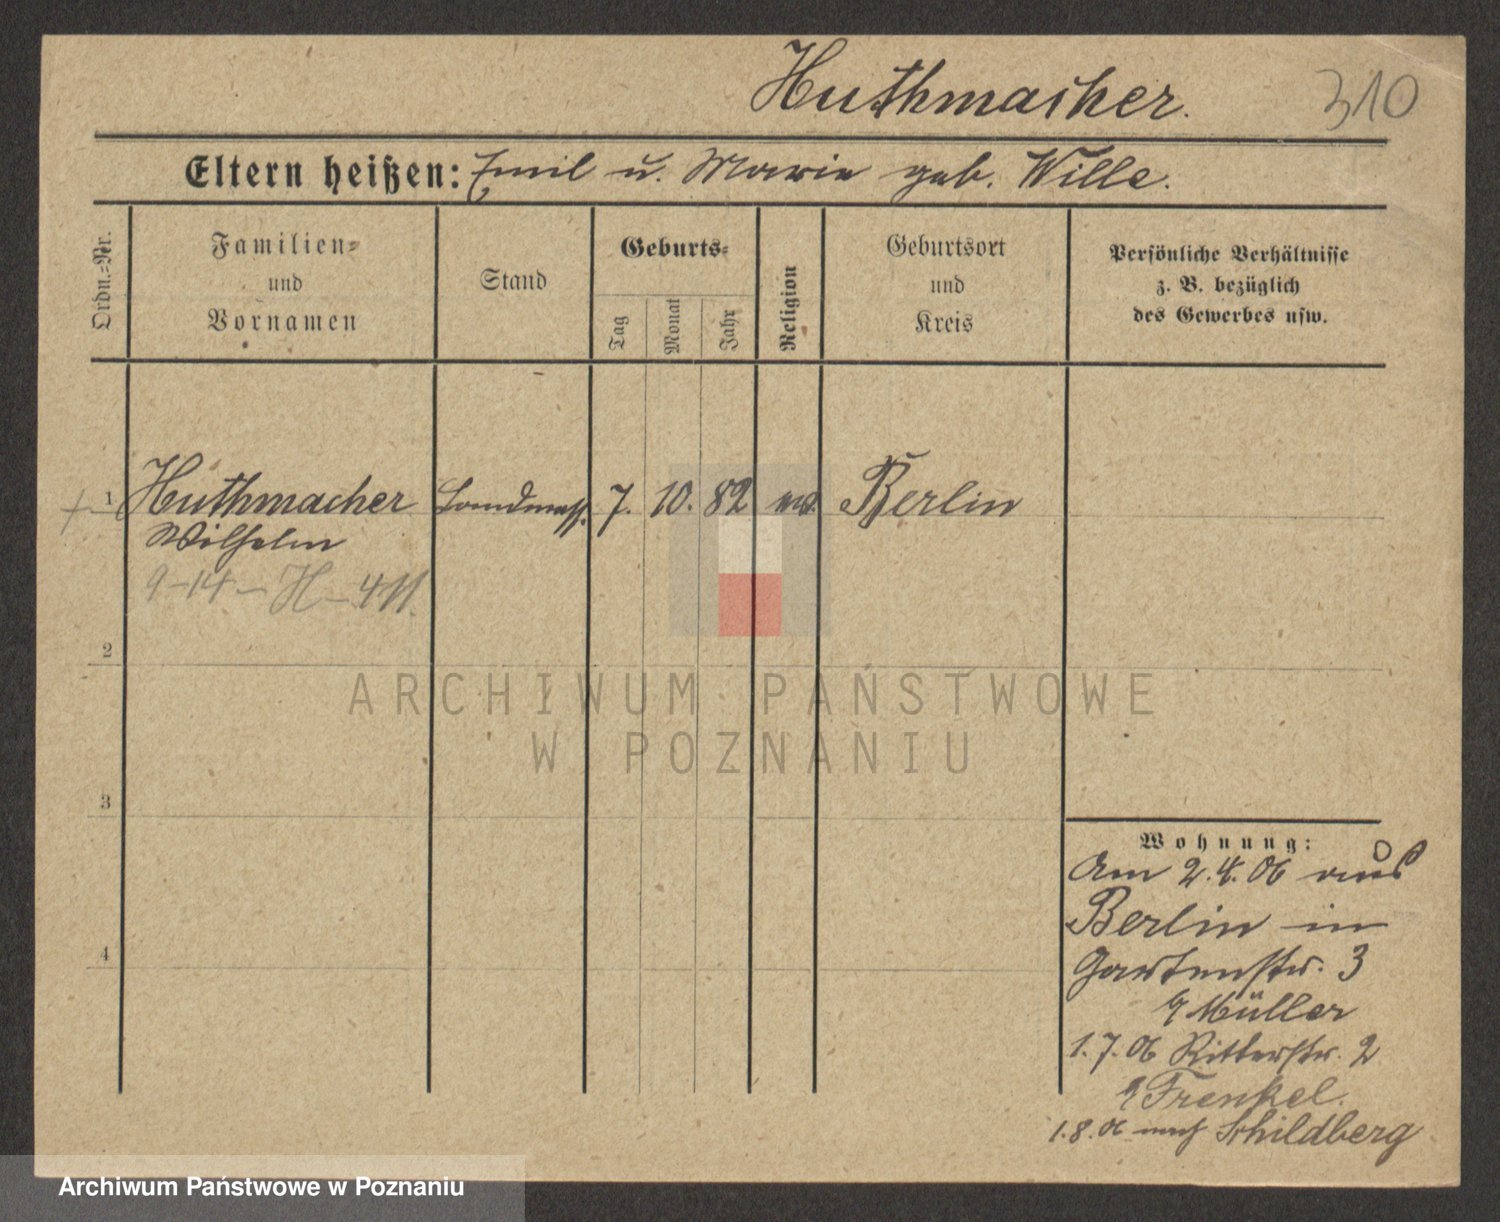 Huthmacher.
310
Eltern heißen: Emil u. Marie geb. Wille.
Ordn.=Nr.
Familien=
und
Vornamen
Stand
Geburts=
Tag
Monat
Jahr
Religion
Geburtsort
und
Kreis
Persönliche Verhältnisse
z. B. bezüglich
des Gewerbes usw.
1 Huthmacher Landmess. 7. 10. 82 Berlin
Wilhelm
9-14-H-411.
2
ARCHIWUM PAŃSTWOWE
W POZNANIU
3
Wohnung:
Am 2.4.06 aus
Berlin in
4
Gartenstr. 3
Müller
1.7.06 Ritterstr. 2
Frenkel.
1.8.06 nach Schildberg
Archiwum Państwowe w Poznaniu